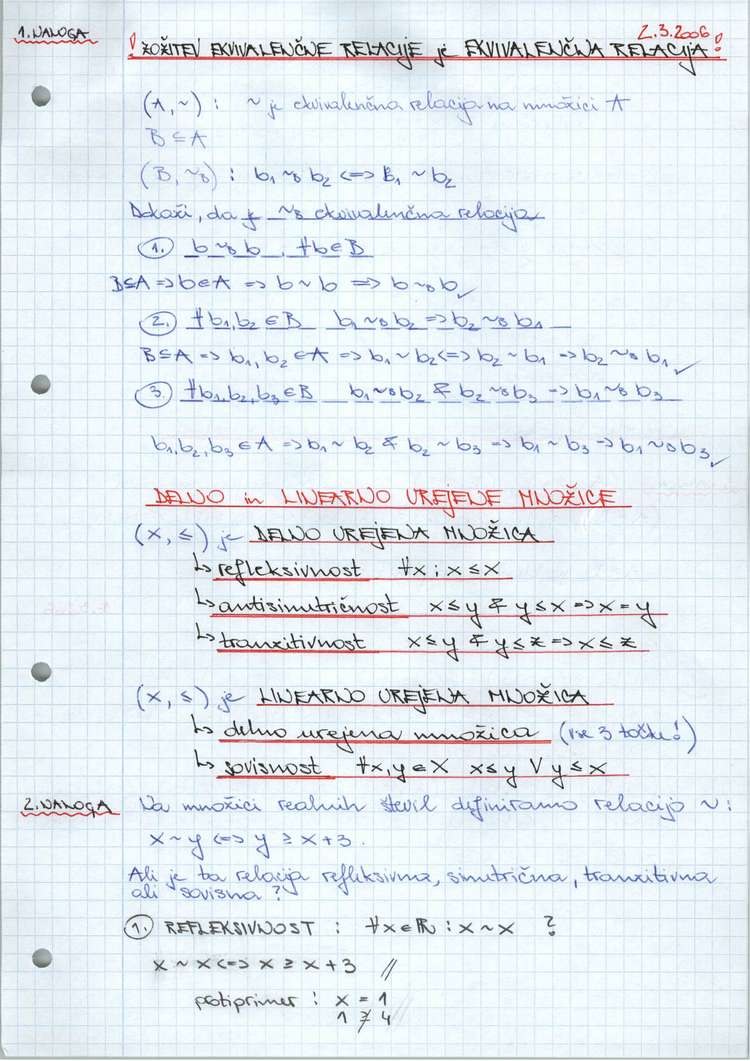 1. NALOGA
2.3.2006
! ZOŽITEV EKVIVALENČNE RELACIJE je EKVIVALENČNA RELACIJA!
(A, ~) : ~ je ekvivalenčna relacija na množici A
B ⊆ A
(B, ~B) : b1 ~B b2 <=> b1 ~ b2
Dokaži, da je ~B ekvivalenčna relacija
1. b ~B b, ∀b∈B
B⊆A => b∈A => b ~ b => b ~B b ✓
2. ∀b1, b2 ∈ B b1 ~B b2 => b2 ~B b1
B⊆A => b1, b2 ∈ A => b1 ~ b2 <=> b2 ~ b1 => b2 ~B b1 ✓
3. ∀b1, b2, b3 ∈ B b1 ~B b2 & b2 ~B b3 => b1 ~B b3
b1, b2, b3 ∈ A => b1 ~ b2 & b2 ~ b3 => b1 ~ b3 => b1 ~B b3 ✓
DELNO in LINEARNO UREJENE MNOŽICE
(X, ≤) je DELNO UREJENA MNOŽICA
↳ refleksivnost ∀x ; x ≤ x
↳ antisimetričnost x ≤ y & y ≤ x => x = y
↳ tranzitivnost x ≤ y & y ≤ z => x ≤ z
(X, ≤) je LINEARNO UREJENA MNOŽICA
↳ delno urejena množica (vse 3 točke!)
↳ sovisnost ∀x, y ∈ X x ≤ y V y ≤ x
2. NALOGA Na množici realnih števil definiramo relacijo ~ :
x ~ y <=> y ≥ x + 3.
Ali je ta relacija refleksivna, simetrična, tranzitivna
ali sovisna ?
1. REFLEKSIVNOST : ∀x ∈ ℝ : x ~ x ?
x ~ x <=> x ≥ x + 3 //
protiprimer : x = 1
1 ≱ 4